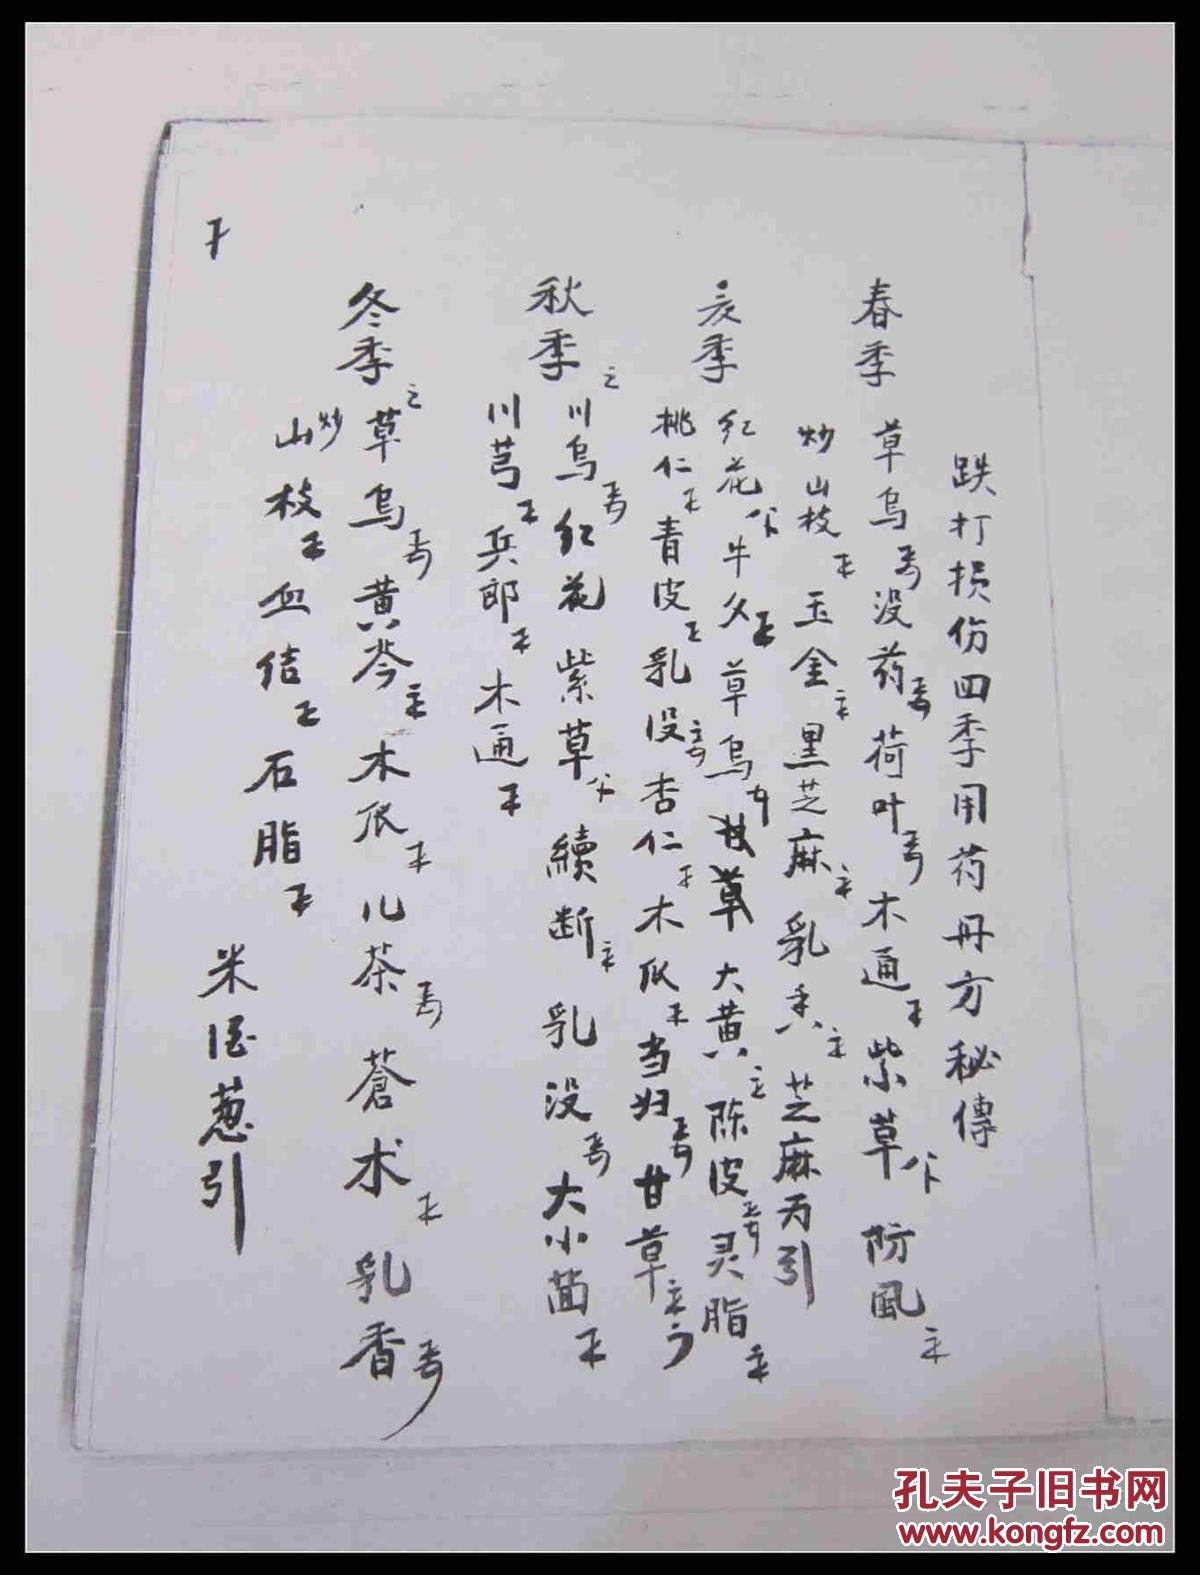 跌打损伤四季用药丹方秘傳
春季 草乌 没药 荷叶 木通 紫草 防風
炒山枝 玉金 黑芝麻 乳香 芝麻为引
夏季 红花 牛夕 草乌 甘草 大黄 陈皮 灵脂
桃仁 青皮 乳没 杏仁 木瓜 当归 甘草
秋季 川乌 红花 紫草 續断 乳没 大小茴
川芎 兵郎 木通
冬季 草乌 黄芩 木瓜 儿茶 蒼术 乳香
炒山枝 血结 石脂
米酒葱引
孔夫子旧书网
www.kongfz.com